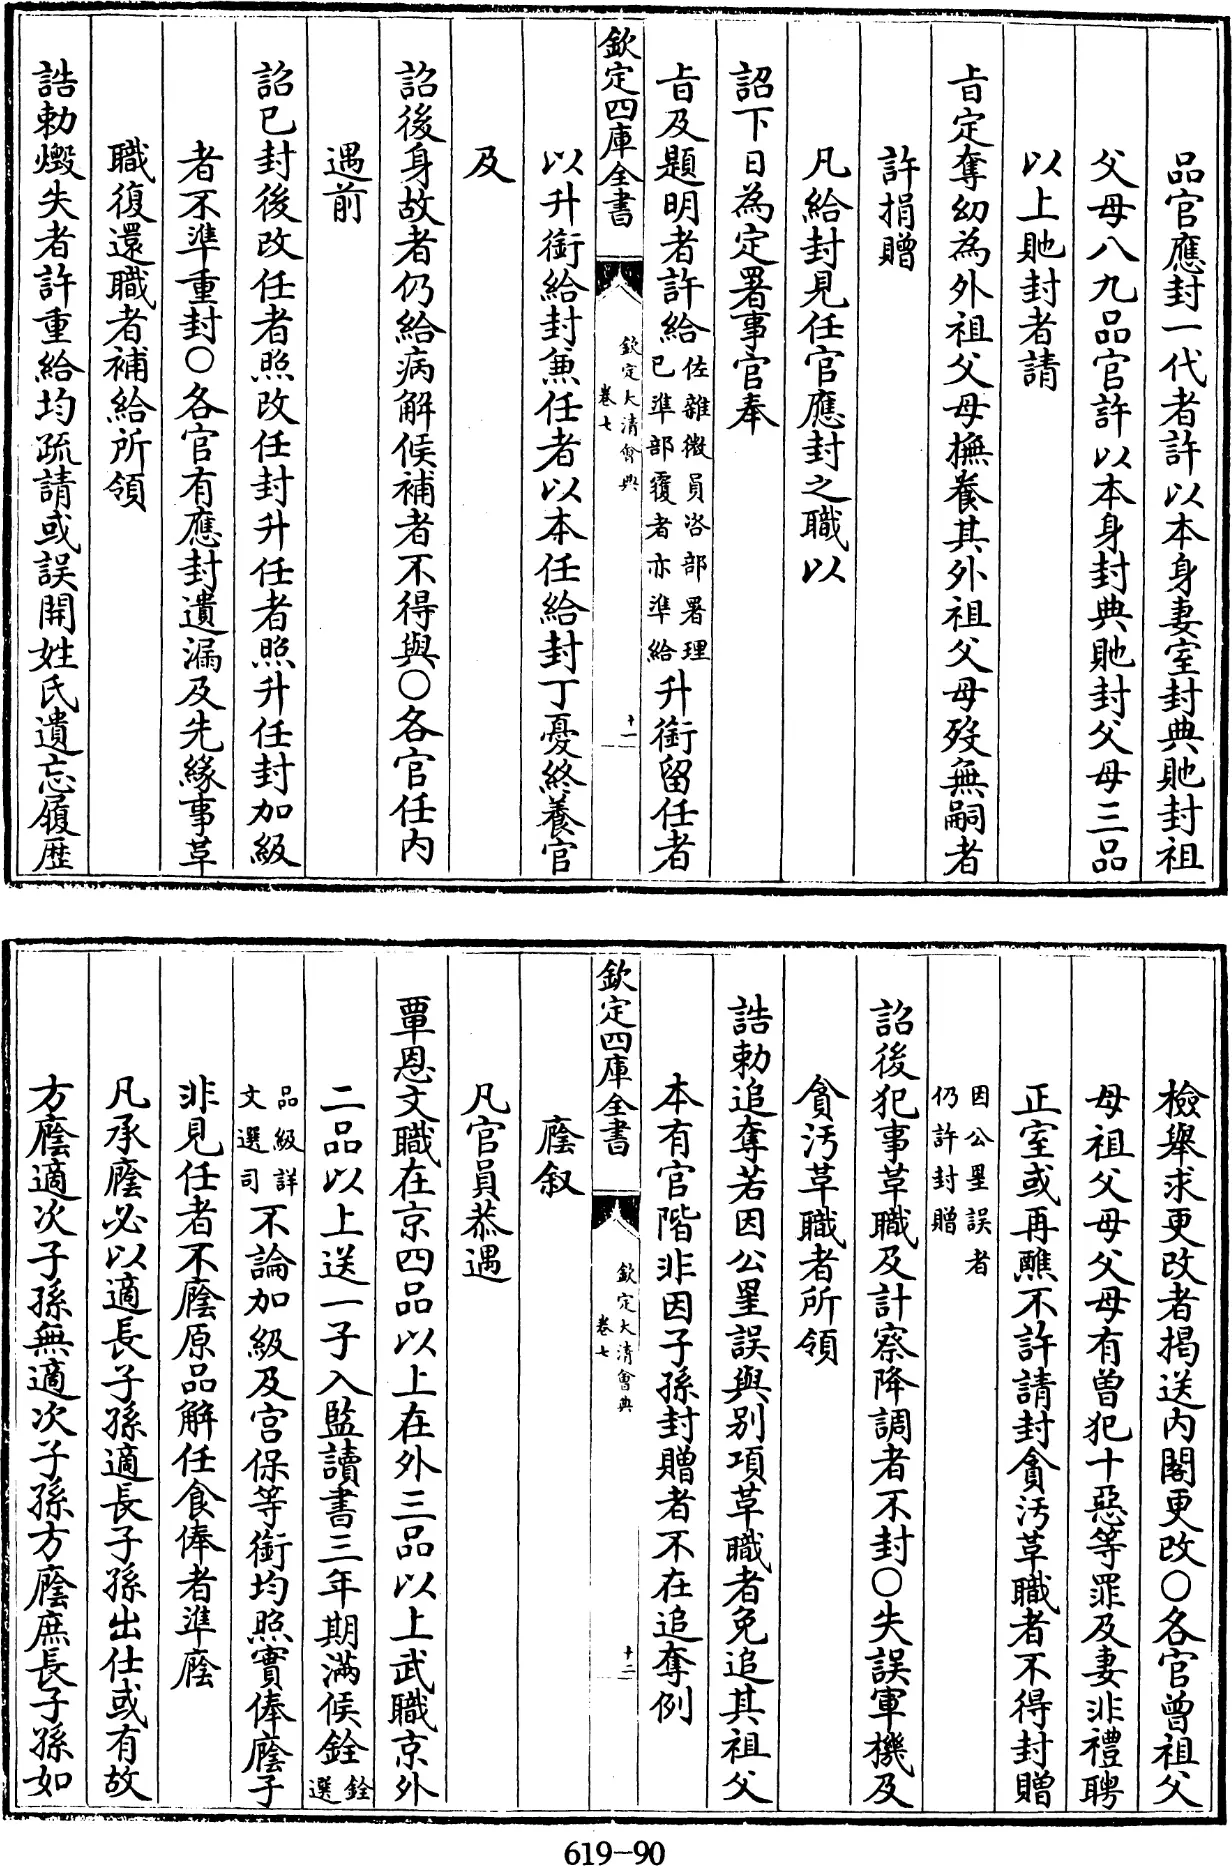 品官應封一代者許以本身妻室封典貤封祖
父母八九品官許以本身封典貤封父母三品
以上貤封者請
旨定奪幼為外祖父母撫養其外祖父母歿無嗣者
許捐贈
凡給封見任官應封之職以
詔下日為定署事官奉
旨及題明者許給佐雜微員咨部署理已準部覆者亦準給升銜留任者
欽定四庫全書
欽定大清會典
卷七
十一
以升銜給封兼任者以本任給封丁憂終養官
及
詔後身故者仍給病解候補者不得與〇各官任内
遇前
詔已封後改任者照改任封升任者照升任封加級
者不準重封〇各官有應封遺漏及先緣事革
職復還職者補給所領
誥勅燬失者許重給均疏請或誤開姓氏遺忘履歴
檢舉求更改者揭送内閣更改〇各官曾祖父
母祖父母父母有曾犯十惡等罪及妻非禮聘
正室或再醮不許請封貪汚革職者不得封贈
因公罣誤者仍許封贈
詔後犯事革職及計察降調者不封〇失誤軍機及
貪汚革職者所領
誥勅追奪若因公罣誤與别項革職者免追其祖父
本有官階非因子孫封贈者不在追奪例
欽定四庫全書
欽定大清會典
卷七
十二
廕叙
凡官員恭遇
覃恩文職在京四品以上在外三品以上武職京外
二品以上送一子入監讀書三年期滿候銓銓選
品級詳文選司不論加級及宫保等銜均照實俸廕子
非見任者不廕原品解任食俸者準廕
凡承廕必以適長子孫適長子孫出仕或有故
方廕適次子孫無適次子孫方廕庶長子孫如
619-90